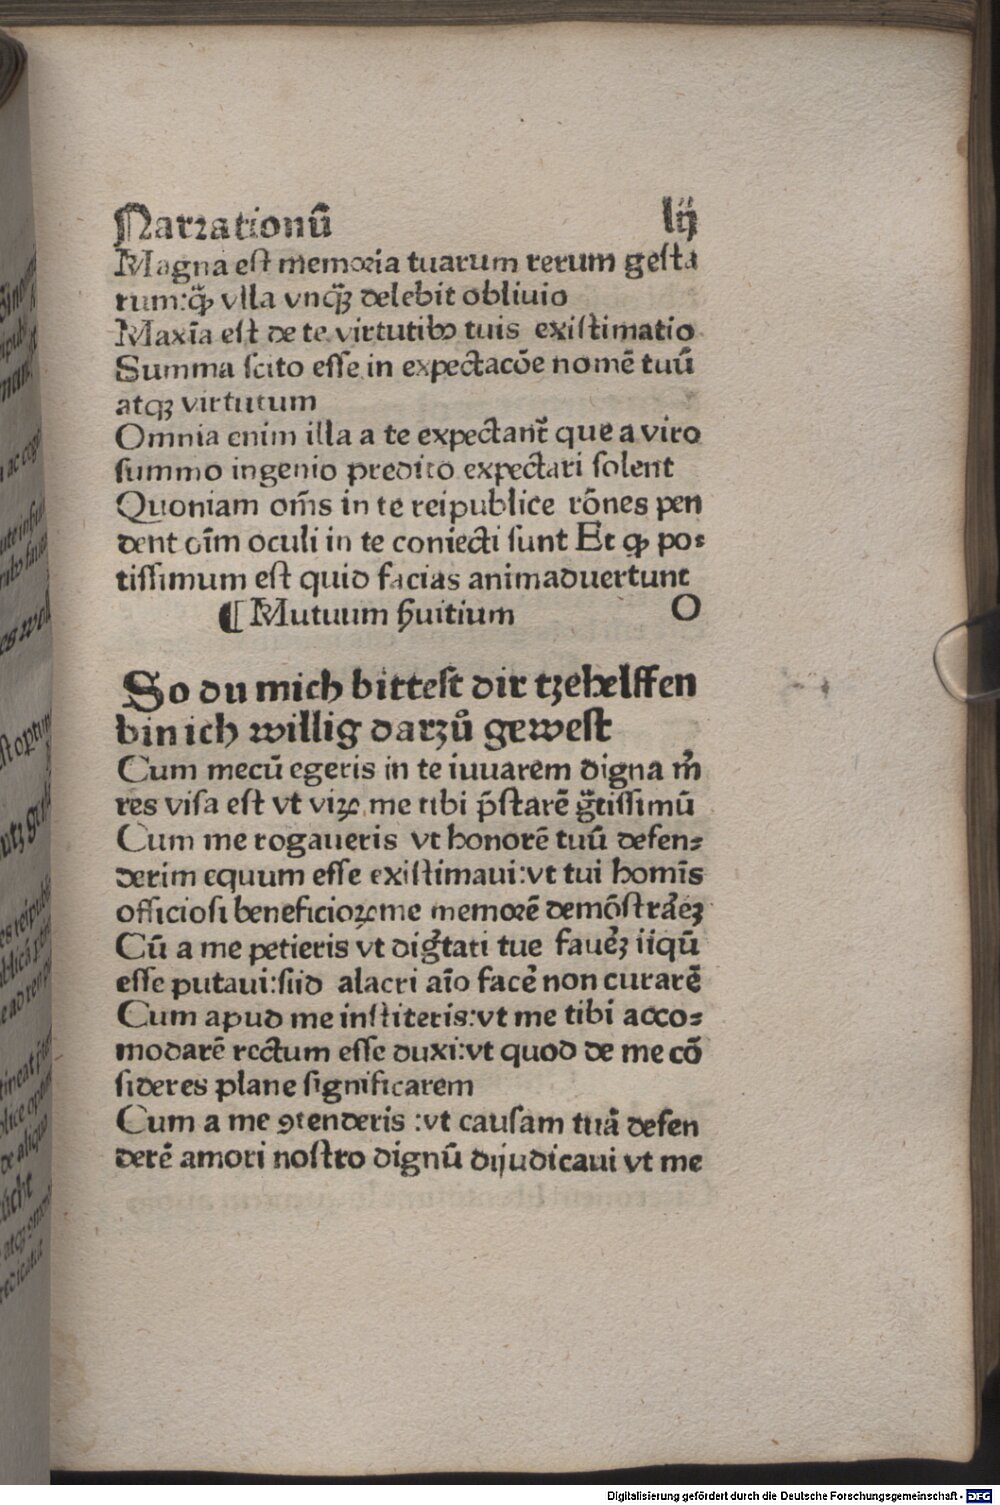 Narrationū lij
Magna est memoria tuarum rerum gesta
rum:qͣꝫ vlla vnqͣꝫ delebit obliuio
Maxīa est de te virtutibꝰ tuis existimatio
Summa scito esse in expectacōe nomē tuū
atqꝫ virtutum
Omnia enim illa a te expectant᷑ que a viro
summo ingenio predito expectari solent
Quoniam om̄s in te reipublice rōnes pen
dent oīm oculi in te coniecti sunt Et ꝙ po⸗
tissimum est quid facias animaduertunt
¶ Mutuum ẜuitium O
So du mich bittest dir tzehelffen
bin ich willig darzů gewest
Cum mecū egeris in te iuuarem digna m̄
res visa est vt viꝝ me tibi p̄starē gͣtissimū
Cum me rogaueris vt honorē tuū defen⸗
derim equum esse existimaui:vt tui homīs
officiosi beneficioꝝ me memorē demōstrar̄eꝫ
Cū a me petieris vt dig̃tati tue faueꝫ̄ iiqū
esse putaui:siid alacri aīo facē non curarē
Cum apud me institeris:vt me tibi acco⸗
modarē rectum esse duxi:vt quod de me cō
sideres plane significarem
Cum a me ꝯtenderis :vt causam tuā defen
derē amori nostro dignū dijudicaui vt me
Digitalisierung gefördert durch die Deutsche Forschungsgemeinschaft - DFG